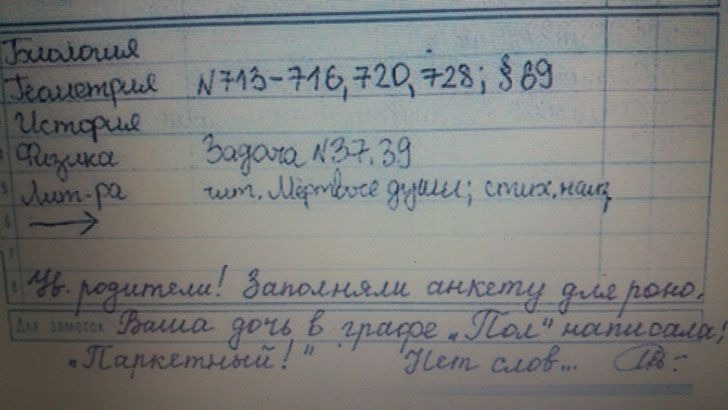 Биология
Геометрия N713-716, 720, 728; § 69
История
Физика Задача N37, 39
Лит-ра чит. Мёртвые души; стих. наиз
6
7
8 Ув. родители! Заполняли анкету для роно.
Для заметок Ваша дочь в графе „Пол" написала:
„Паркетный!" Нет слов...